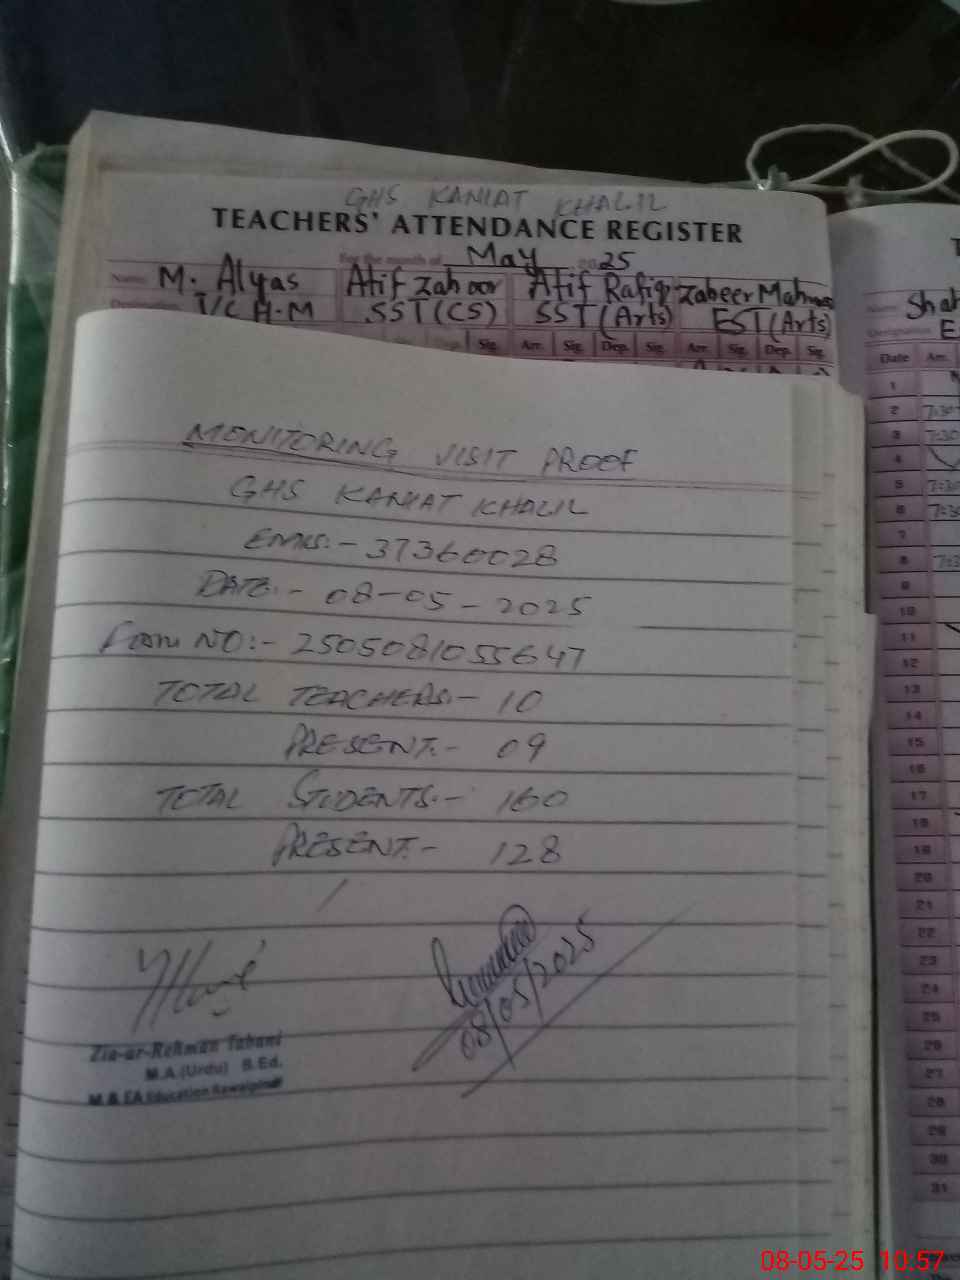 GHS KANIAT KHALIL
TEACHERS' ATTENDANCE REGISTER
For the month of May 2025
Name M. Alyas Atif Zahoor Atif Rafiq Zaheer Mahmood
Designation I/C H.M SST(CS) SST(Arts) EST(Arts)
Sig. Arr. Sig. Dep. Sig. Arr. Sig. Dep. Sig.
MONITORING VISIT PROOF
GHS KANIAT KHALIL
EMIS:- 37360028
DATE:- 08-05-2025
Form NO:- 2505081055647
TOTAL TEACHERS:- 10
PRESENT:- 09
TOTAL STUDENTS:- 160
PRESENT:- 128
08/05/2025
Zia-ur-Rehman Tabani
M.A (Urdu) B.Ed.
M & EA Education Rawalpindi
Shah
Date Arr.
1
2 7:30
3 7:30
4
5 7:30
6 7:30
7
8
9
10
11
12
13
14
15
16
17
18
19
20
21
22
23
24
25
26
27
28
29
30
31
08-05-25 10:57